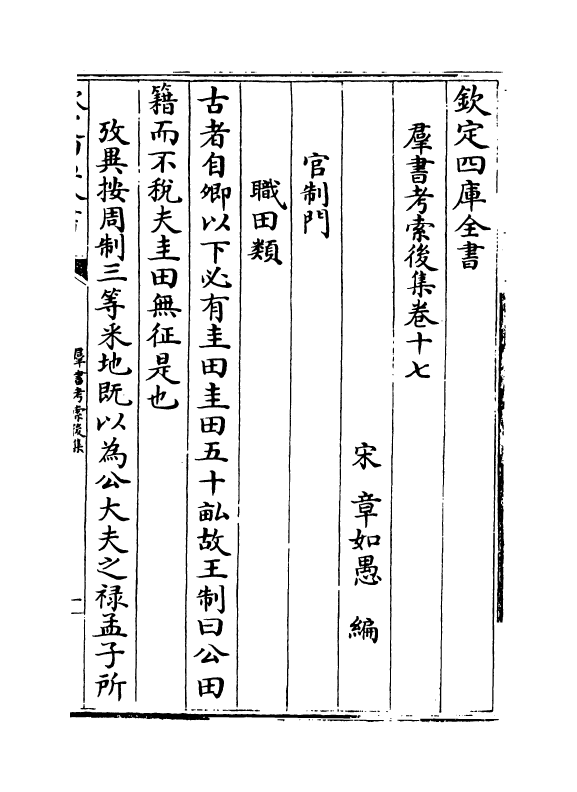 欽定四庫全書
羣書考索後集卷十七
宋 章如愚 編
官制門
職田類
古者自卿以下必有圭田圭田五十畝故王制曰公田
籍而不税夫圭田無征是也
攷異按周制三等米地既以為公大夫之禄孟子所
羣書考索後集